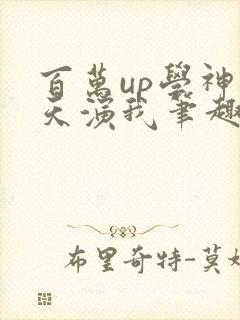 百萬up學神
天演我筆趣
布里奇特-莫